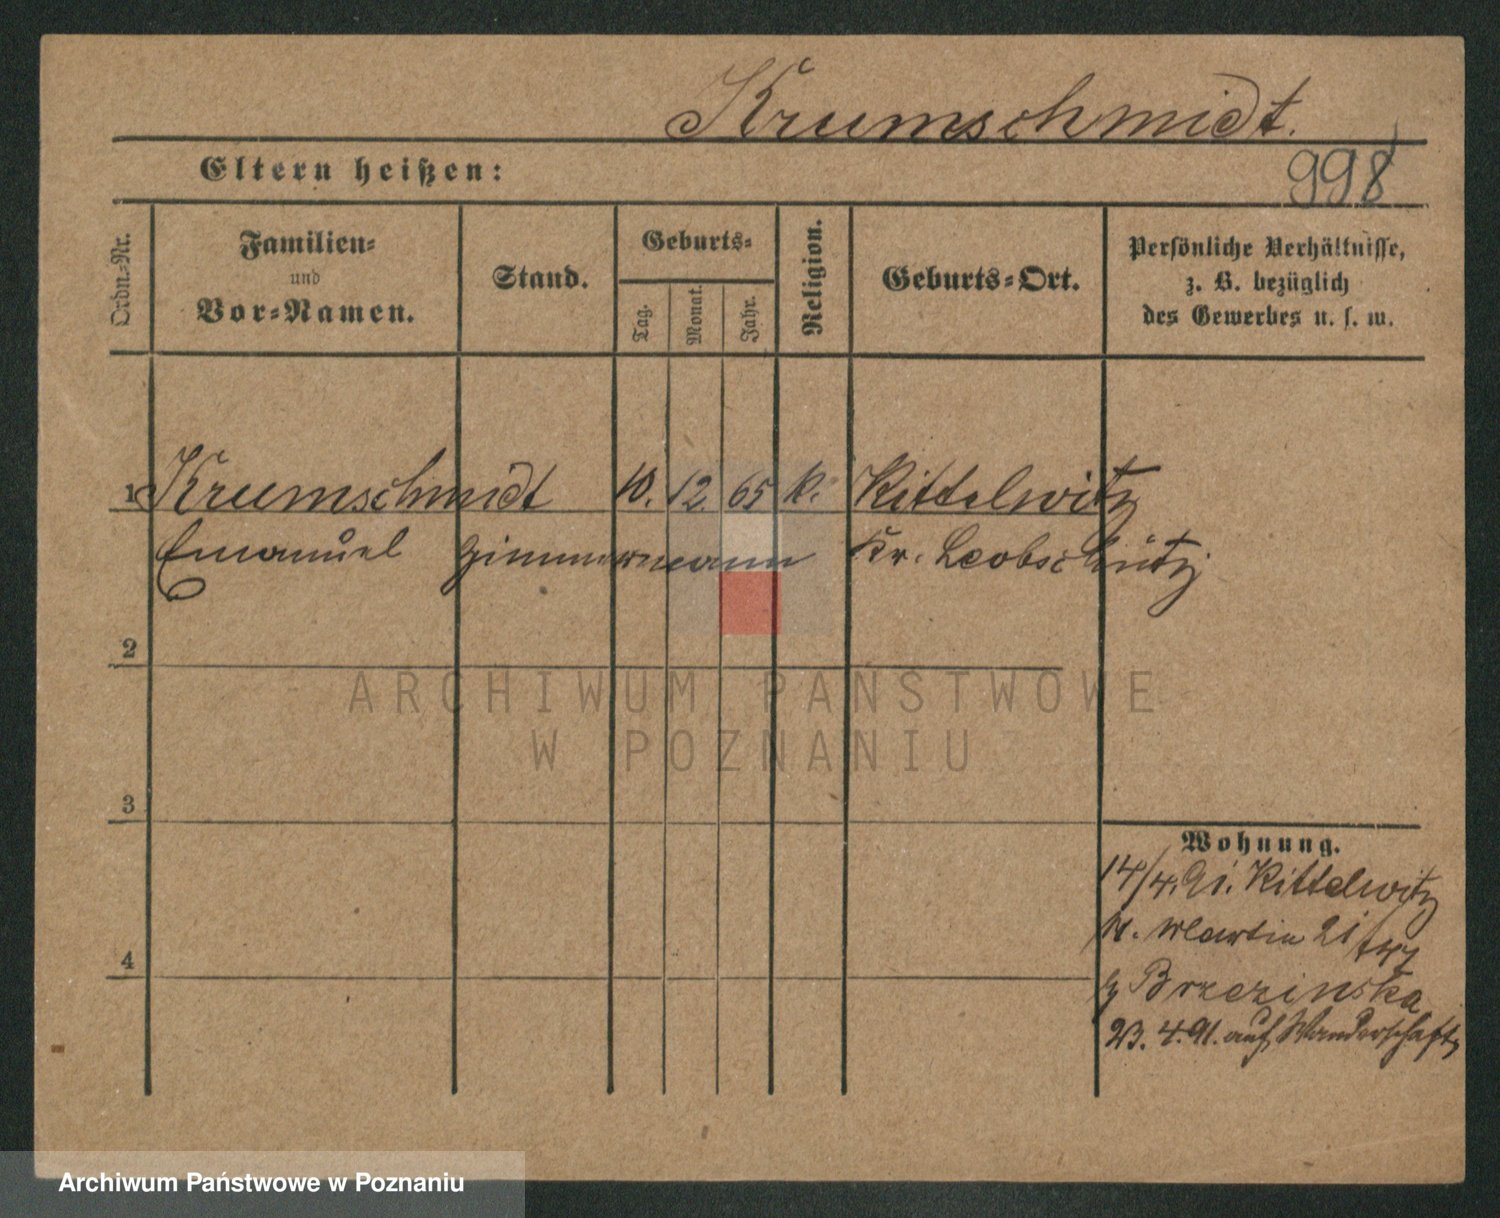 Krumschmidt.
Eltern heißen:
998
Ordn.-Nr.
Familien-
und
Vor-Namen.
Stand.
Geburts-
Tag.
Monat.
Jahr.
Religion.
Geburts-Ort.
Persönliche Verhältnisse,
z. B. bezüglich
des Gewerbes u. s. w.
1 Krumschmidt 10. 12. 65 k. Kittelwitz
Emanuel Zimmermann Kr. Leobschütz
2
ARCHIWUM PAŃSTWOWE
W POZNANIU
3
4
Wohnung.
14/4. 91. Kittelwitz
St. Martin 21
Brzezinska
23. 4. 91. auf Wanderschaft
Archiwum Państwowe w Poznaniu